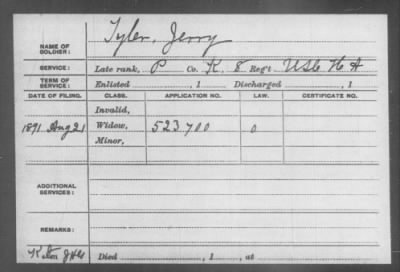 NAME OF SOLDIER: Tyler, Jerry
SERVICE: Late rank, P Co. K, 8 Reg't U.S.C. H. A.
TERM OF SERVICE: Enlisted , 1 Discharged , 1
DATE OF FILING. CLASS. APPLICATION NO. LAW. CERTIFICATE NO.
Invalid,
1891 Aug 21 Widow, 523700 0
Minor,
ADDITIONAL SERVICES:
REMARKS:
Died , 1 , at